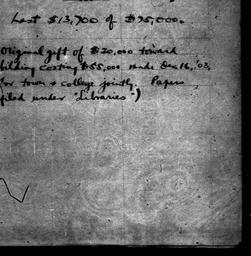 Last $13,700 of $95,000.
Original gift of $20,000 toward
bilding costing $55,000 made Dec 16, '03,
for town & college jointly. Papers
filed under "Libraries")